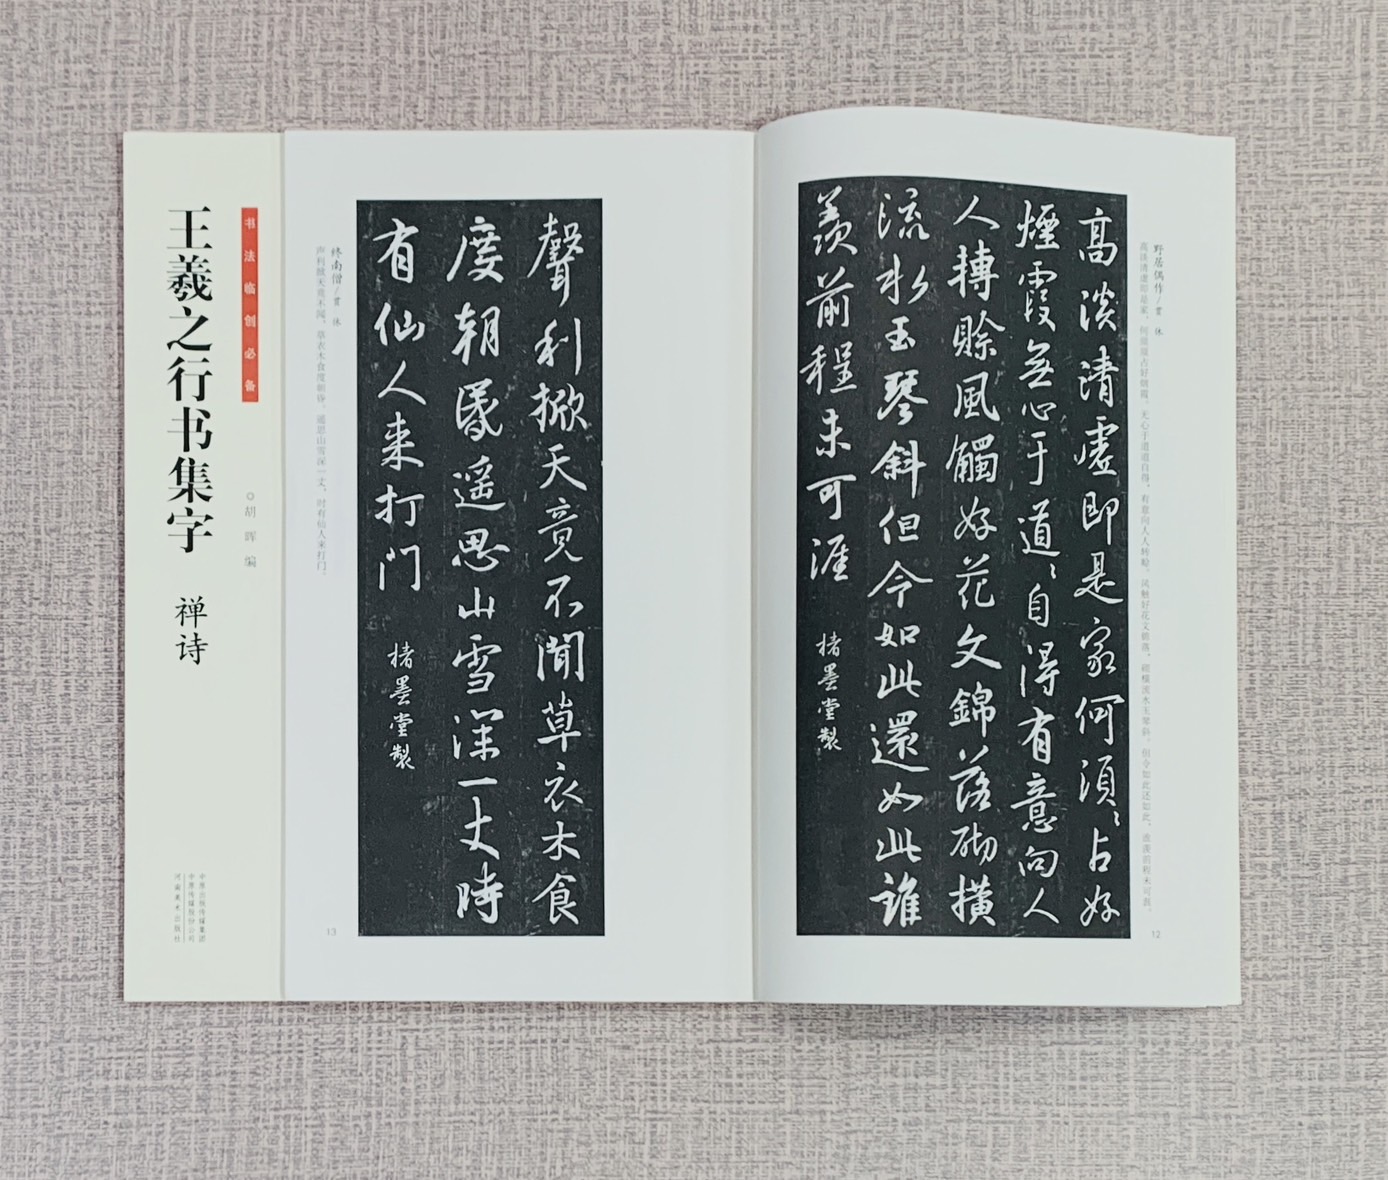 野居偶作/贯休
高淡清虚即是家，何须须占好烟霞。无心于道道自得，有意向人人转赊。风触好花文锦落，砌横流水玉琴斜。但令如此还如此，谁羡前程未可涯。
高淡清虛即是家何須〻占好
煙霞無心于道〻自得有意向人
人轉賒風觸好花文錦落砌橫
流水玉琴斜但今如此還如此誰
羨前程未可涯
楮墨堂製
12
聲利掀天竟不聞草衣木食
度朝昏遥思山雪深一丈時
有仙人来打門
楮墨堂製
终南僧/贯休
声利掀天竟不闻，草衣木食度朝昏。遥思山雪深一丈，时有仙人来打门。
13
书法临创必备
◎胡晖 编
王羲之行书集字 禅诗
中原出版传媒集团
中原传媒股份公司
河南美术出版社